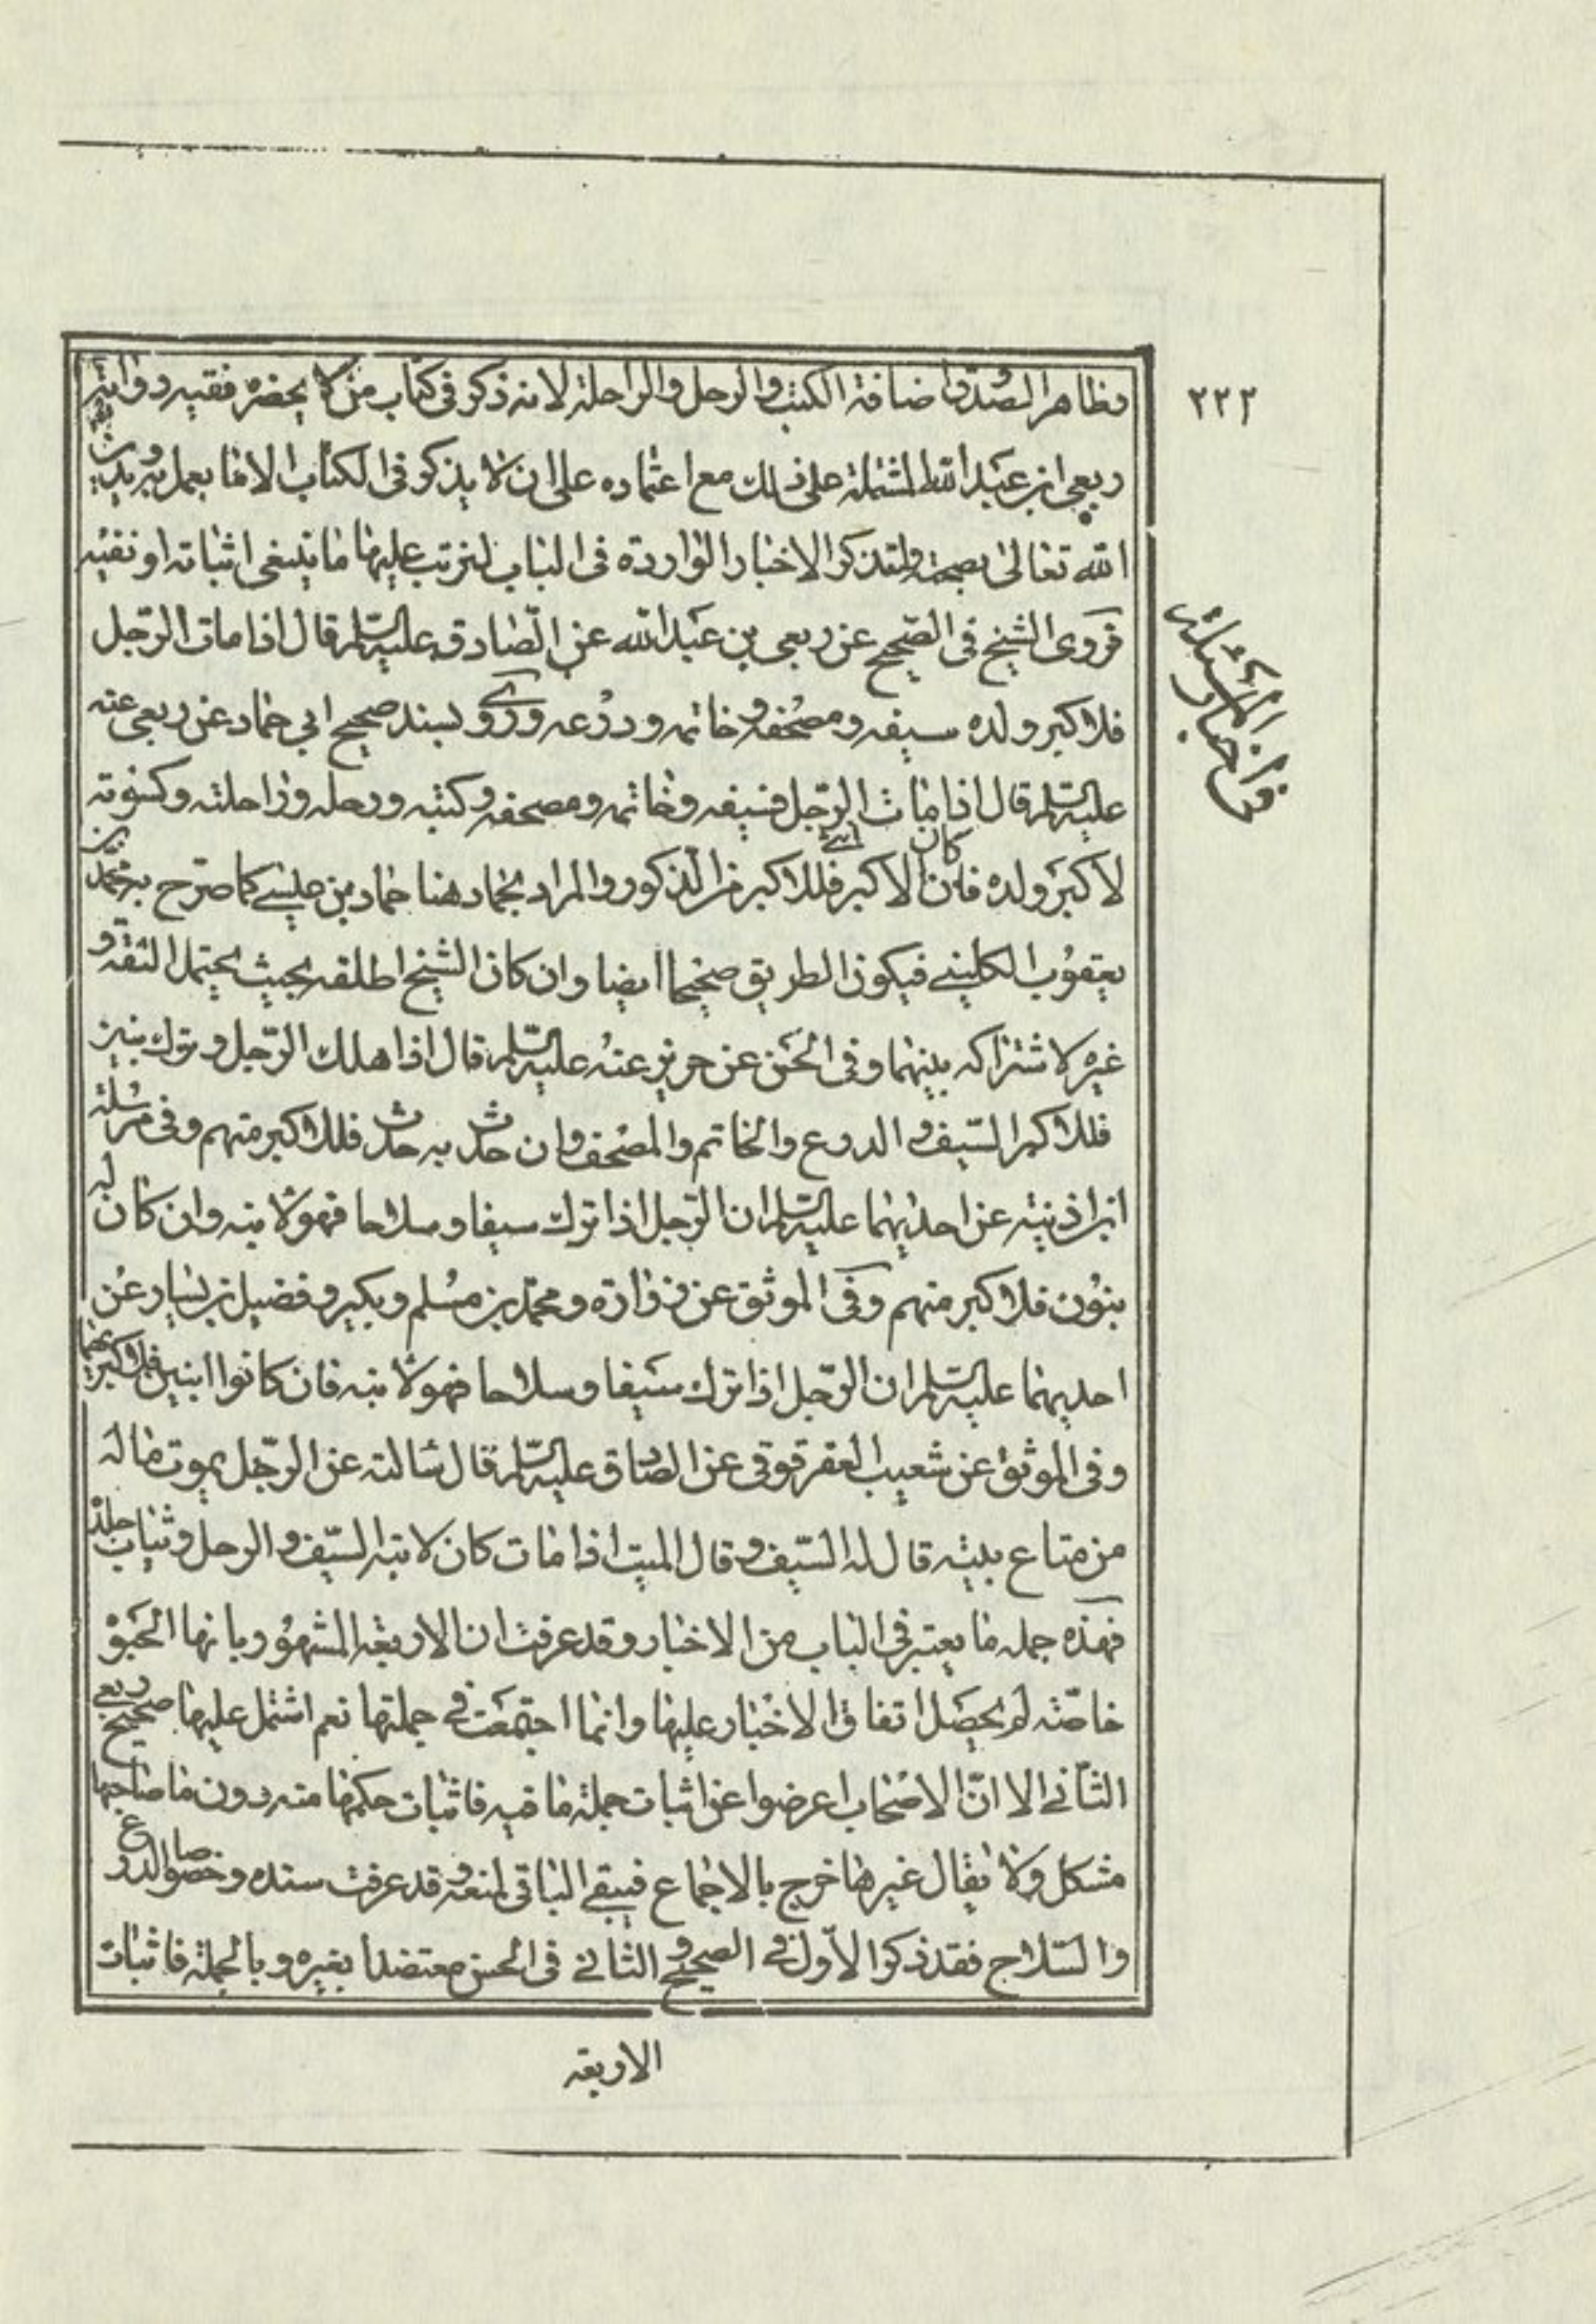 ٢٢٢
وظاهر الصدوق اضافة الكتب والرحل والراحلة لانه ذكر في كتاب من لا يحضره فقيه رواية
ربعي ابن عبد الله المشتملة على ذلك مع اعتماده على ان لا يذكر في الكتاب الا ما يعمل به ويدين
الله تعالى بصحته ولنذكر الاخبار الواردة في الباب لنرتب عليها ما ينبغي اثباته او نفيه
فروى الشيخ في الصحيح عن ربعي بن عبد الله عن الصادق عليه السلم قال اذا مات الرجل
فلاكبر ولده سيفه ومصحفه وخاتمه ودرعه وروى بسند صحيح الي حماد عن ربعي عنه
عليه السلم قال اذا مات الرجل فسيفه وخاتمه ومصحفه وكتبه ورحله وراحلته وكسوته
لاكبر ولده فان كان الاكبر ابنة فللاكبر من الذكور والمراد بحماد هنا حماد بن عيسى كما صرح به محمد بن
يعقوب الكليني فيكون الطريق صحيحا ايضا وان كان الشيخ اطلقه بحيث يحتمل الثقة و
غيره لاشتراكه بينهما وفي الحسن عن حريز عنه عليه السلم قال اذا هلك الرجل وترك بنين
فللاكبر السيف والدرع والخاتم والمصحف وان حدث به حدث فللاكبر منهم وفي مرسلة
ابن اذينة عن احديهما عليه السلم ان الرجل اذا ترك سيفا وسلاحا فهو لابنه وان كان له
بنون فلاكبر منهم وفي الموثق عن زرارة ومحمد بن مسلم وبكير وفضيل بن يسار عن
احديهما عليه السلم ان الرجل اذا ترك سيفا وسلاحا فهو لابنه فان كانوا ابنين فلاكبرهما
وفي الموثق عن شعيب العقرقوقي عن الصادق عليه السلم قال سالته عن الرجل يموت ماله
من متاع بيته قال له السيف وقال الميت اذا مات كان لابنه السيف والرحل وثياب جلده
فهذه جمله ما يعتبر في الباب من الاخبار وقد عرفت ان الاربعة المشهور بانها الحبوة
خاصة لم يحصل اتفاق الاخبار عليها وانما اجتمعت في جملتها نعم اشتمل عليها صحيح ربعي
الثاني الا ان الاصحاب اعرضوا عن اثبات جملة ما فيه فاثبات حكمها منه دون ما صاحبها
مشكل ولا يقال غيرها خرج بالاجماع فيبقى الباقي لمنعه وقد عرفت سنده وخصوصا الدرع
والسلاح فقد ذكر الاول في الصحيح والثاني في الحسن معتضدا بغيره وبالجملة فاثبات
الاربعة